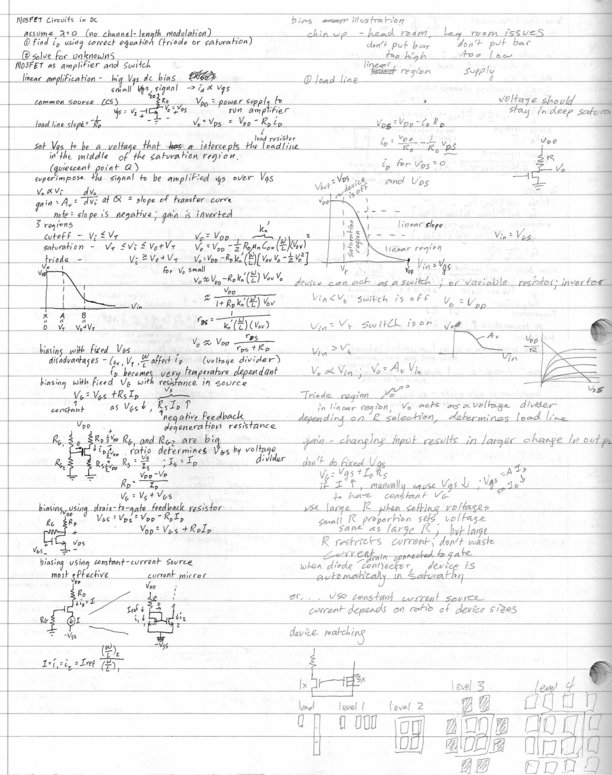 MOSFET Circuits in DC
assume λ=0 (no channel-length modulation)
① find iD using correct equation (triode or saturation)
② solve for unknowns
MOSFET as amplifier and switch
linear amplification - big VGS dc bias
small vgs, signal → id ∝ vgs
common source (CS)
VDD = power supply to
run amplifier
load line slope = -1/RD
Vo = VDS = VDD - RD iD
load resistor
Set VGS to be a voltage that intercepts the loadline
in the middle of the saturation region.
(quiescent point Q)
superimpose the signal to be amplified vgs over VGS
vo ∝ vi
gain = Av = dvo/dvi at Q = slope of transfer curve
note: slope is negative; gain is inverted
3 regions
cutoff - vi ≤ VT
vo = VDD
saturation - VT ≤ vi ≤ vo+VT
triode - vi ≥ vo+VT
for vo small
vo ≈ VDD rDS/(rDS + RD)
(voltage divider)
biasing with fixed VGS
iD becomes very temperature dependant
biasing with fixed VG with resistance in source
VG = VGS + RS ID
constant
as VGS ↓, RS ID ↑
negative feedback
degeneration resistance
RG1 and RG2 are big
ratio determines VGS by voltage
divider
VG = VS + VGS
biasing using drain-to-gate feedback resistor
VGS = VDS = VDD - RD ID
VDD = VGS + RD ID
biasing using constant-current source
most effective
current mirror
I = i1 = i2 = Iref (W/L)2/(W/L)1
bias illustration
chin up - head room, leg room issues
don't put bar
too high
don't put bar
too low
linear region
supply
① load line
voltage should
stay in deep satura
VDS = VDD - iD RD
iD = VDD/RD - 1/RD VDS
iD for VDS=0
and VDS
Vout = VDS
VDD
device is off
saturation region
linear slope
linear region
Vin = VGS
Vin = VGS
device can act as a switch; or variable resistor; invertor
Vin < VT switch is off Vo = VDD
Vin = VT switch is on
vo ∝ vin; vo = Av vin
Triode region
in linear region, vo acts as a voltage divider
depending on R selection, determines load line
gain - changing input results in larger change in outp
don't do fixed VGS
VG = VGS + ID RS
if I ↑, manually cause VGS ↓
to have constant VG
use large R when setting voltages
small R proportion sets voltage
same as large R, but large
R restricts current; don't waste
current
drain connected to gate
when diode connector, device is
automatically in saturation
or... use constant current source
current depends on ratio of device sizes
device matching
1x
3x
bad
level 1
level 2
level 3
level 4